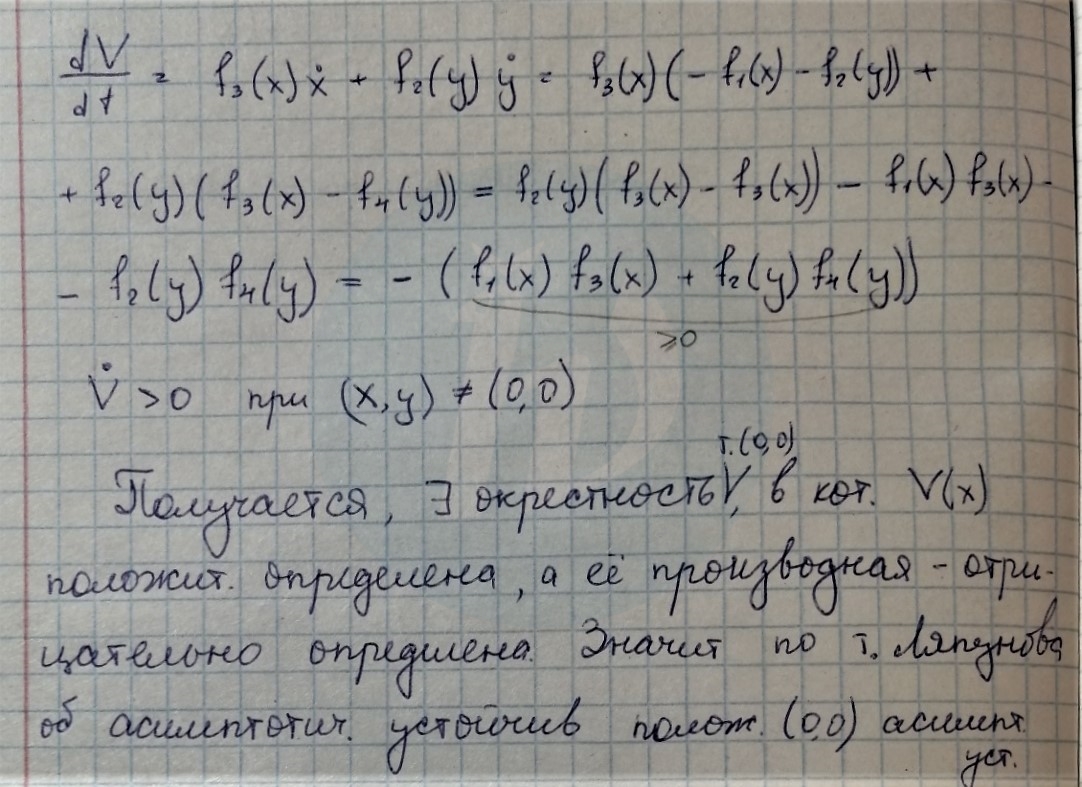 dV/dt = f₃(x)ẋ + f₂(y)ẏ = f₃(x)(-f₁(x) - f₂(y)) +
+ f₂(y)(f₃(x) - f₄(y)) = f₂(y)(f₃(x) - f₃(x)) - f₁(x)f₃(x) -
- f₂(y)f₄(y) = -(f₁(x)f₃(x) + f₂(y)f₄(y))
≥0
V̇ > 0 при (x,y) ≠ (0,0)
т.(0,0)
Получается, ∃ окрестность V, в кот. V(x)
положит. определена, а её производная - отри-
цательно определена. Значит по т. Ляпунова
об асимптотич. устойчив полож. (0,0) асимпт.
уст.